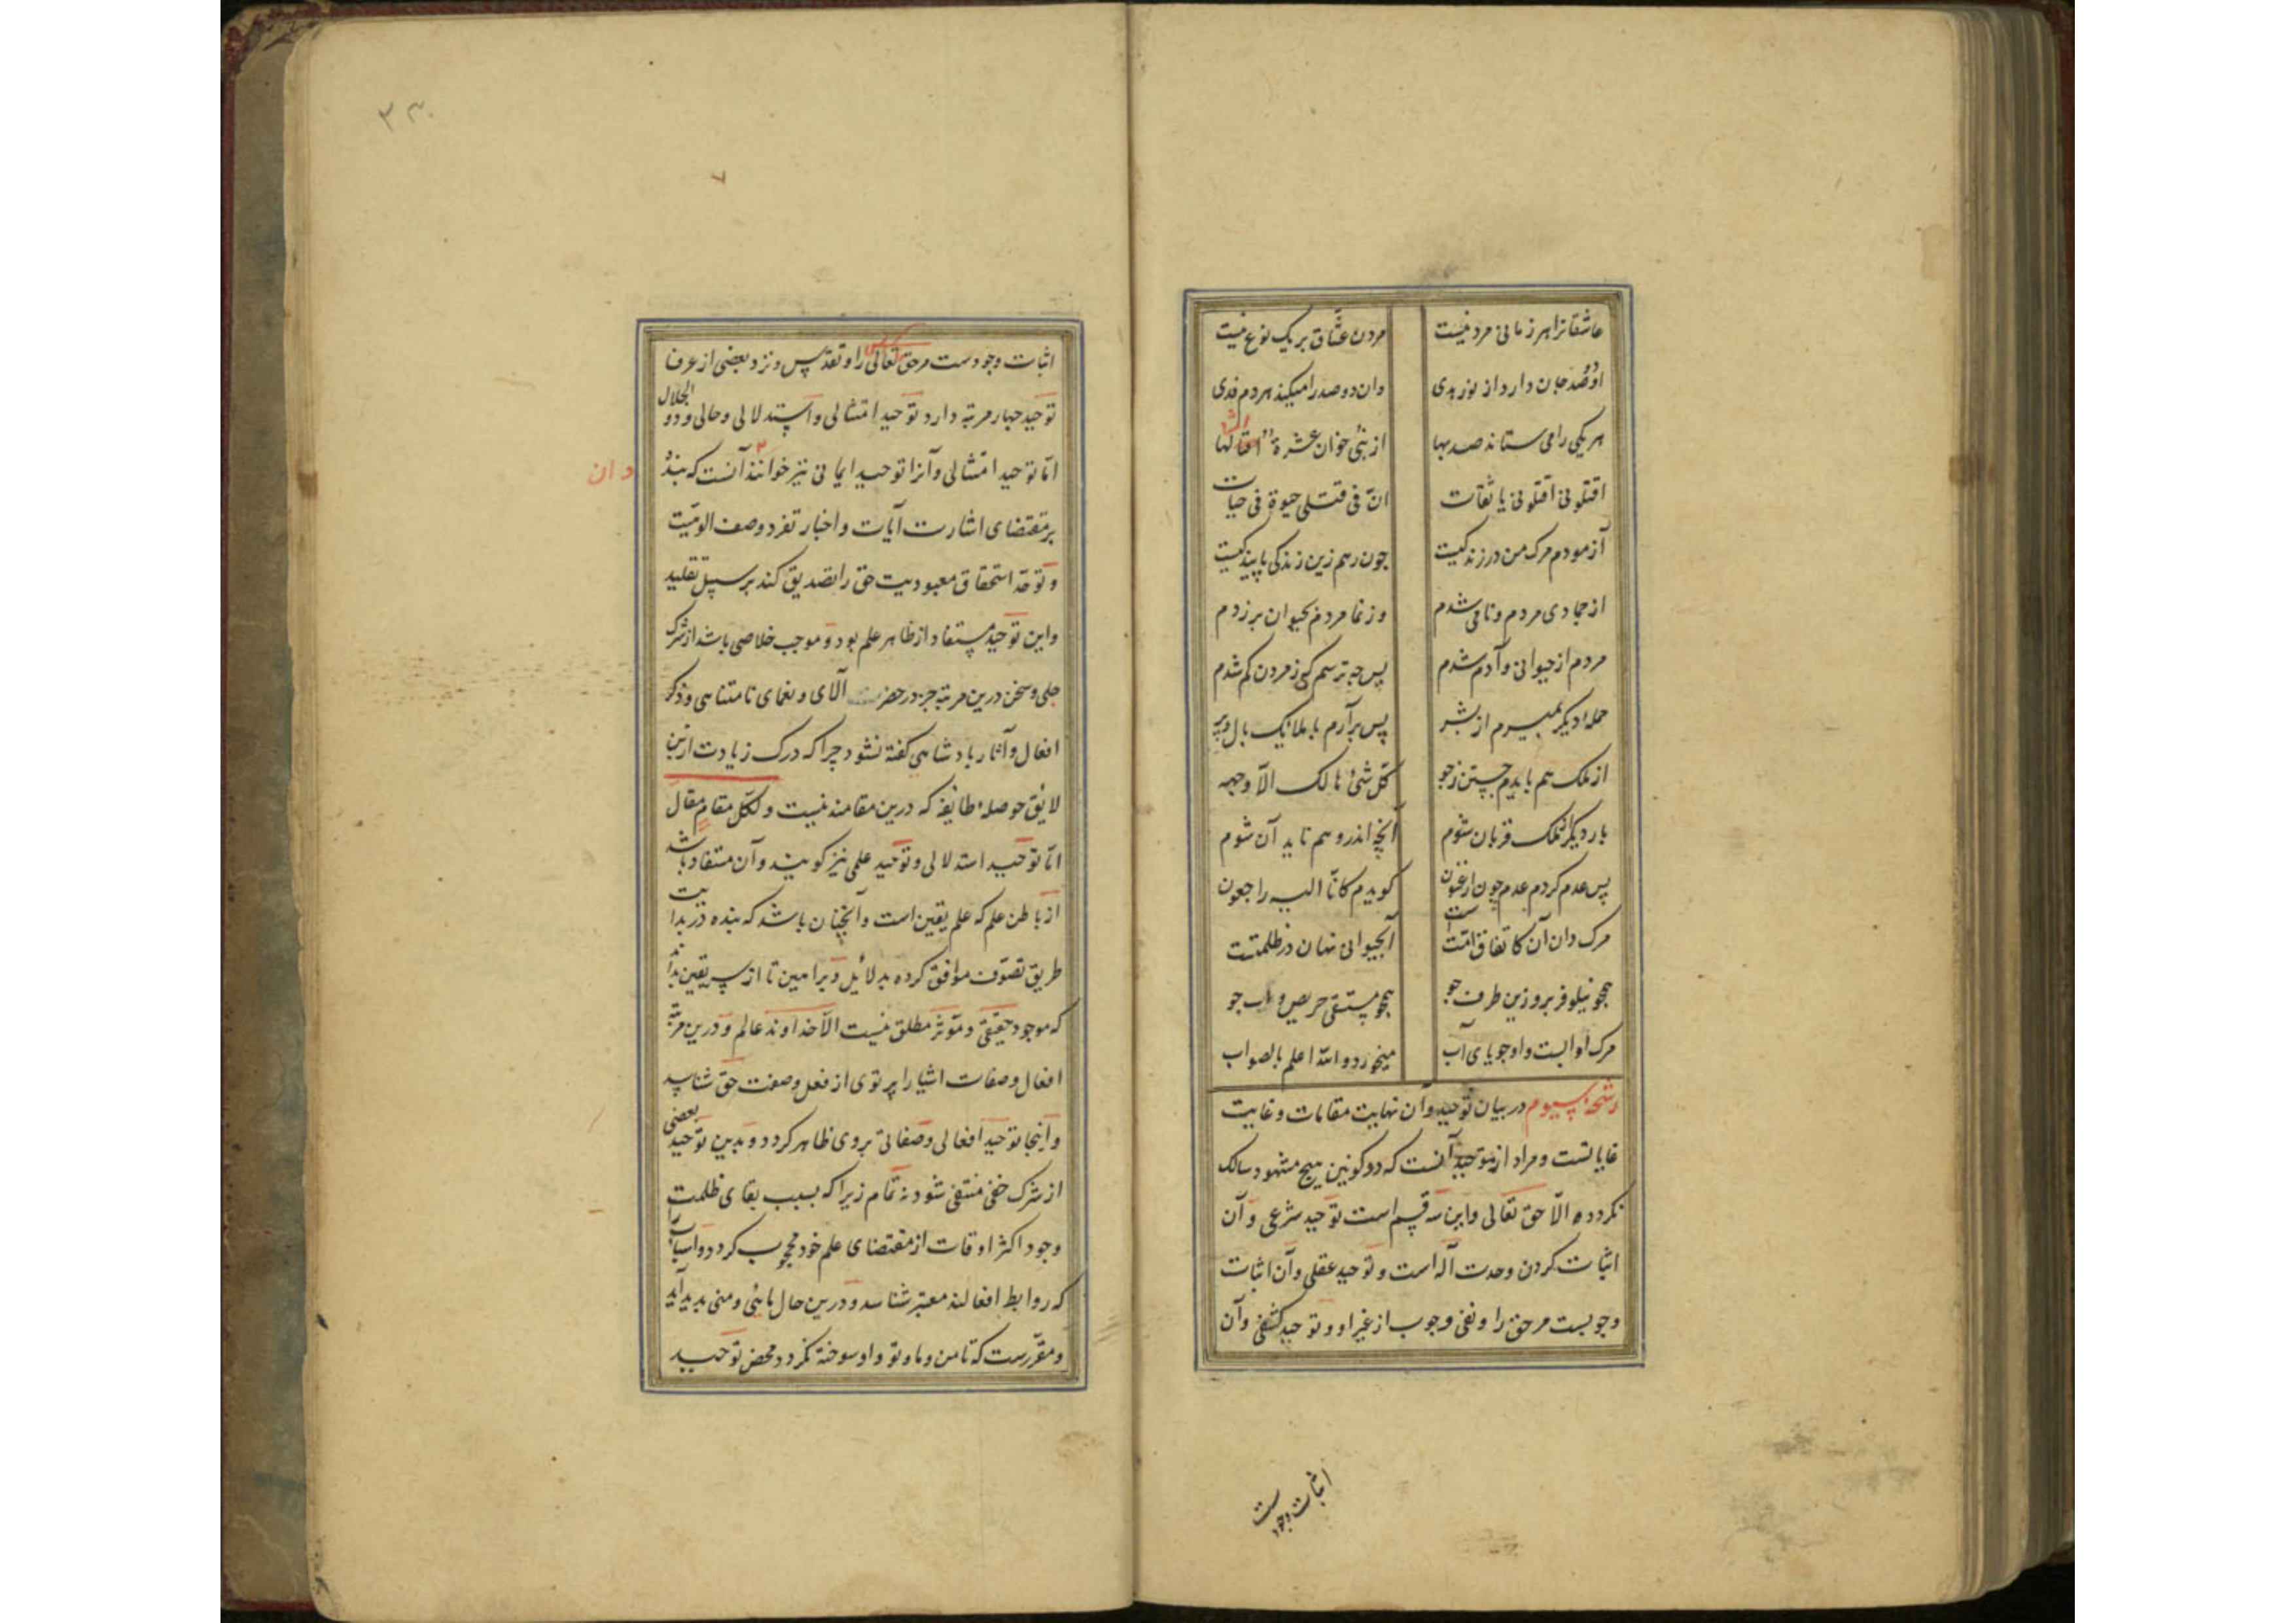 عاشقانرا هر زمانی مردنیست مردن عشّاق بریک نوع نیست
او دو صد جان دارد از نور هدی وان دو صد را میکند هر دم فدی
هر یکی را می ستاند صد بها از نبی خوان عشرة امثالها
اقتلونی اقتلونی یا ثقات انّ فی قتلی حیوة فی حیات
آزمودم مرک من در زندکیست چون رهم زین زندکی پایندکیست
از جمادی مردم و نامی شدم وز نما مردم بحیوان برزدم
مردم از حیوانی و آدم شدم پس چه ترسم کی ز مردن کم شدم
حملهٔ دیکر بمیرم از بشر پس برآرم با ملایک بال و پر
از ملک هم بایدم جستن ز جو کلّ شیٔ هالک الّا وجهه
بار دیکر از ملک قربان شوم آنچه اندر وهم ناید آن شوم
پس عدم کردم عدم چون ارغنون کویدم کانّا الیه راجعون
مرک دان آن کاتفاق امّتست آبحیوانی نهان در ظلمتست
همچو نیلوفر برو زین طرف جو همچو مستسقی حریص و آب جو
مرک او ابست و او جویای آب میخورد و الله اعلم بالصواب
رشحهٔ سیوم در بیان توحید و آن نهایت مقامات و غایت
غایاتست و مراد از توحید آنست که در کونین هیچ مشهود سالک
نکردد الّا حق تعالی و این سه قسم است توحید شرعی و آن
اثبات کردن وحدت آله است و توحید عقلی و آن اثبات
وجوبست مر حق را و نفی وجوب از غیر او و توحید کشفی و آن
اثبات وجودست
۳۰
اثبات وجودست مر حق تعالی را و تقدّس و نزد بعضی از عرفا
توحید چهار مرتبه دارد توحید امتثالی و استدلالی و حالی و ذو الجلال
امّا توحید امتثالی و آنرا توحید ایمانی نیز خوانند آنست که بنده
بر مقتضای اشارت آیات و اخبار تفرد وصف الوهیّت
و توحّد استحقاق معبودیت حق را تصدیق کند بر سبیل تقلید
و این توحید مستفاد از ظاهر علم بود و موجب خلاصی باشد از شرک
جلی و سخن درین مرتبه جز در حضرت آلای و نعمای نامتناهی و ذکر
افعال و آثار بادشاهی کفته نشود چرا که درک زیادت ازین
لایق حوصلهٔ طایفهٔ که درین مقامند نیست و لکلّ مقام مقال
امّا توحید استدلالی و توحید علمی نیز کویند و آن مستفاد باشد
از باطن علم که علم یقین است و آنچنان باشد که بنده در بدایت
طریق تصوّف موافق کرده بدلائل و براهین تا از سر یقین بداند
که موجود حقیقی و مؤثر مطلق نیست الّا خداوند عالم و درین مرتبه
افعال و صفات اشیا را پرتوی از فعل و صفت حق شناسد
و اینجا توحید افعالی و صفاتی بروی ظاهر کردد و بدین توحید بعضی
از شرک خفی منتفی شود نه تمام زیرا که بسبب بقای ظلمت
وجود اکثر اوقات از مقتضای علم خود محجوب کردد و اسباب را
که روابط افعالند معتبر شناسد و درین حال مائی و منی پدید آید
و مقرّرست که تا من و ما و تو و او سوخته نکردد محض توحید